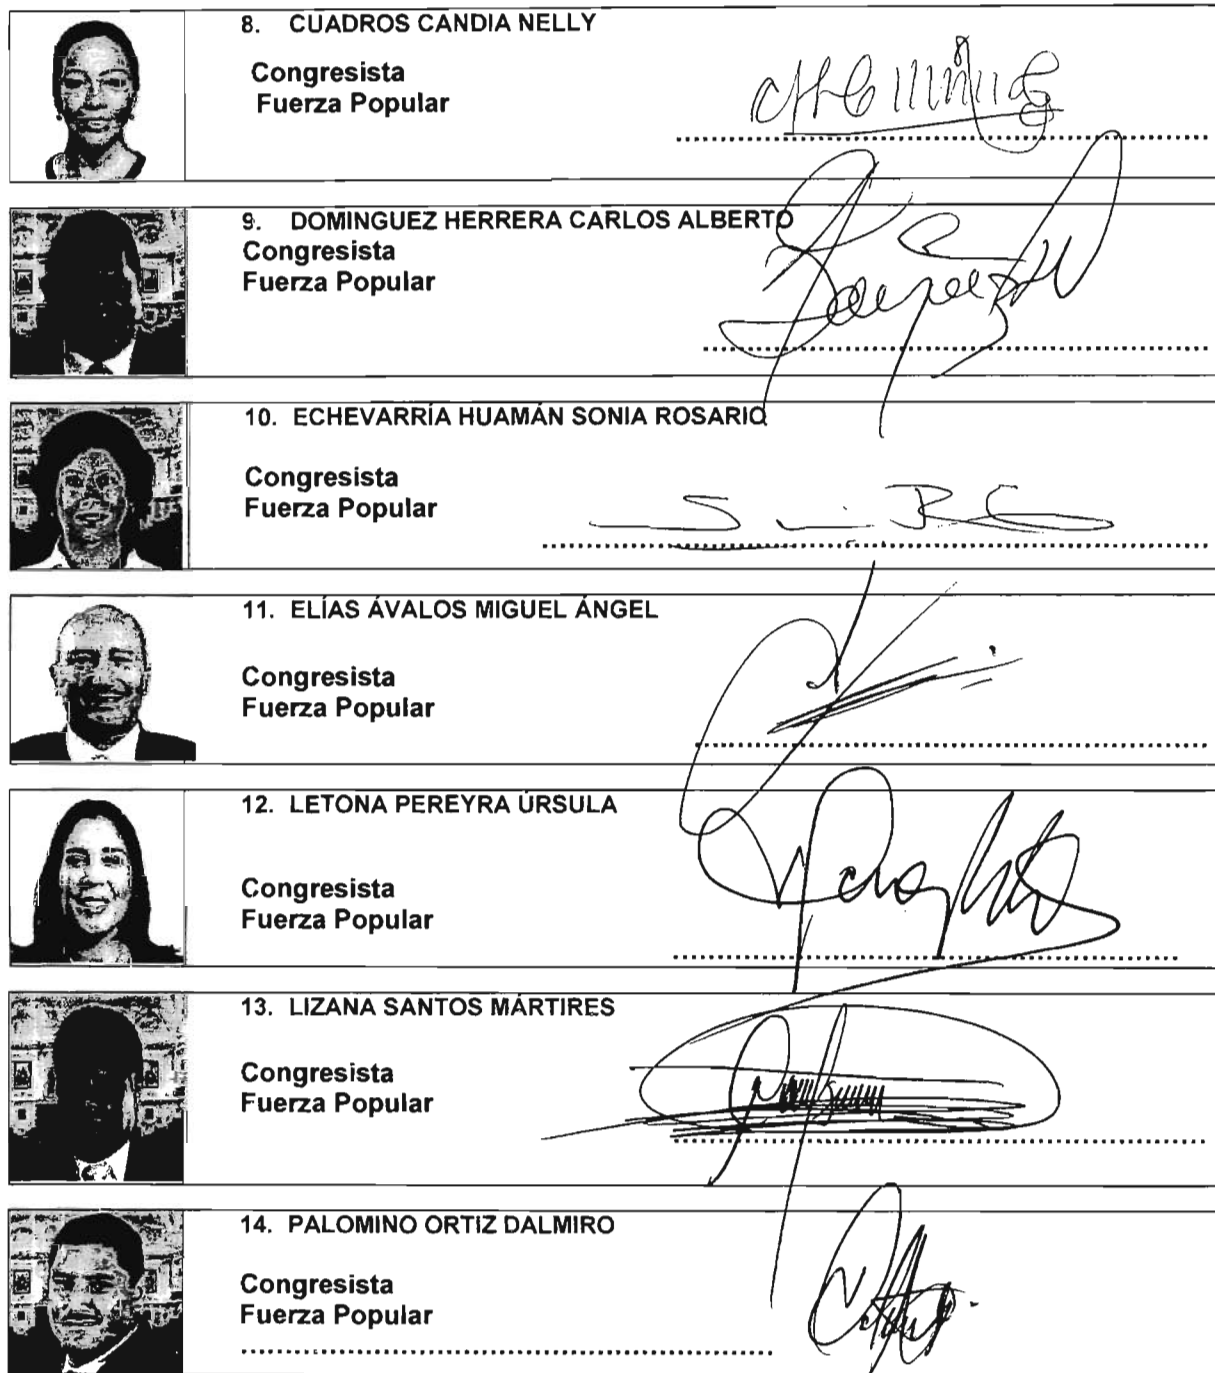 8. CUADROS CANDIA NELLY
Congresista
Fuerza Popular
9. DOMINGUEZ HERRERA CARLOS ALBERTO
Congresista
Fuerza Popular
10. ECHEVARRÍA HUAMÁN SONIA ROSARIO
Congresista
Fuerza Popular
11. ELÍAS ÁVALOS MIGUEL ÁNGEL
Congresista
Fuerza Popular
12. LETONA PEREYRA ÚRSULA
Congresista
Fuerza Popular
13. LIZANA SANTOS MÁRTIRES
Congresista
Fuerza Popular
14. PALOMINO ORTIZ DALMIRO
Congresista
Fuerza Popular